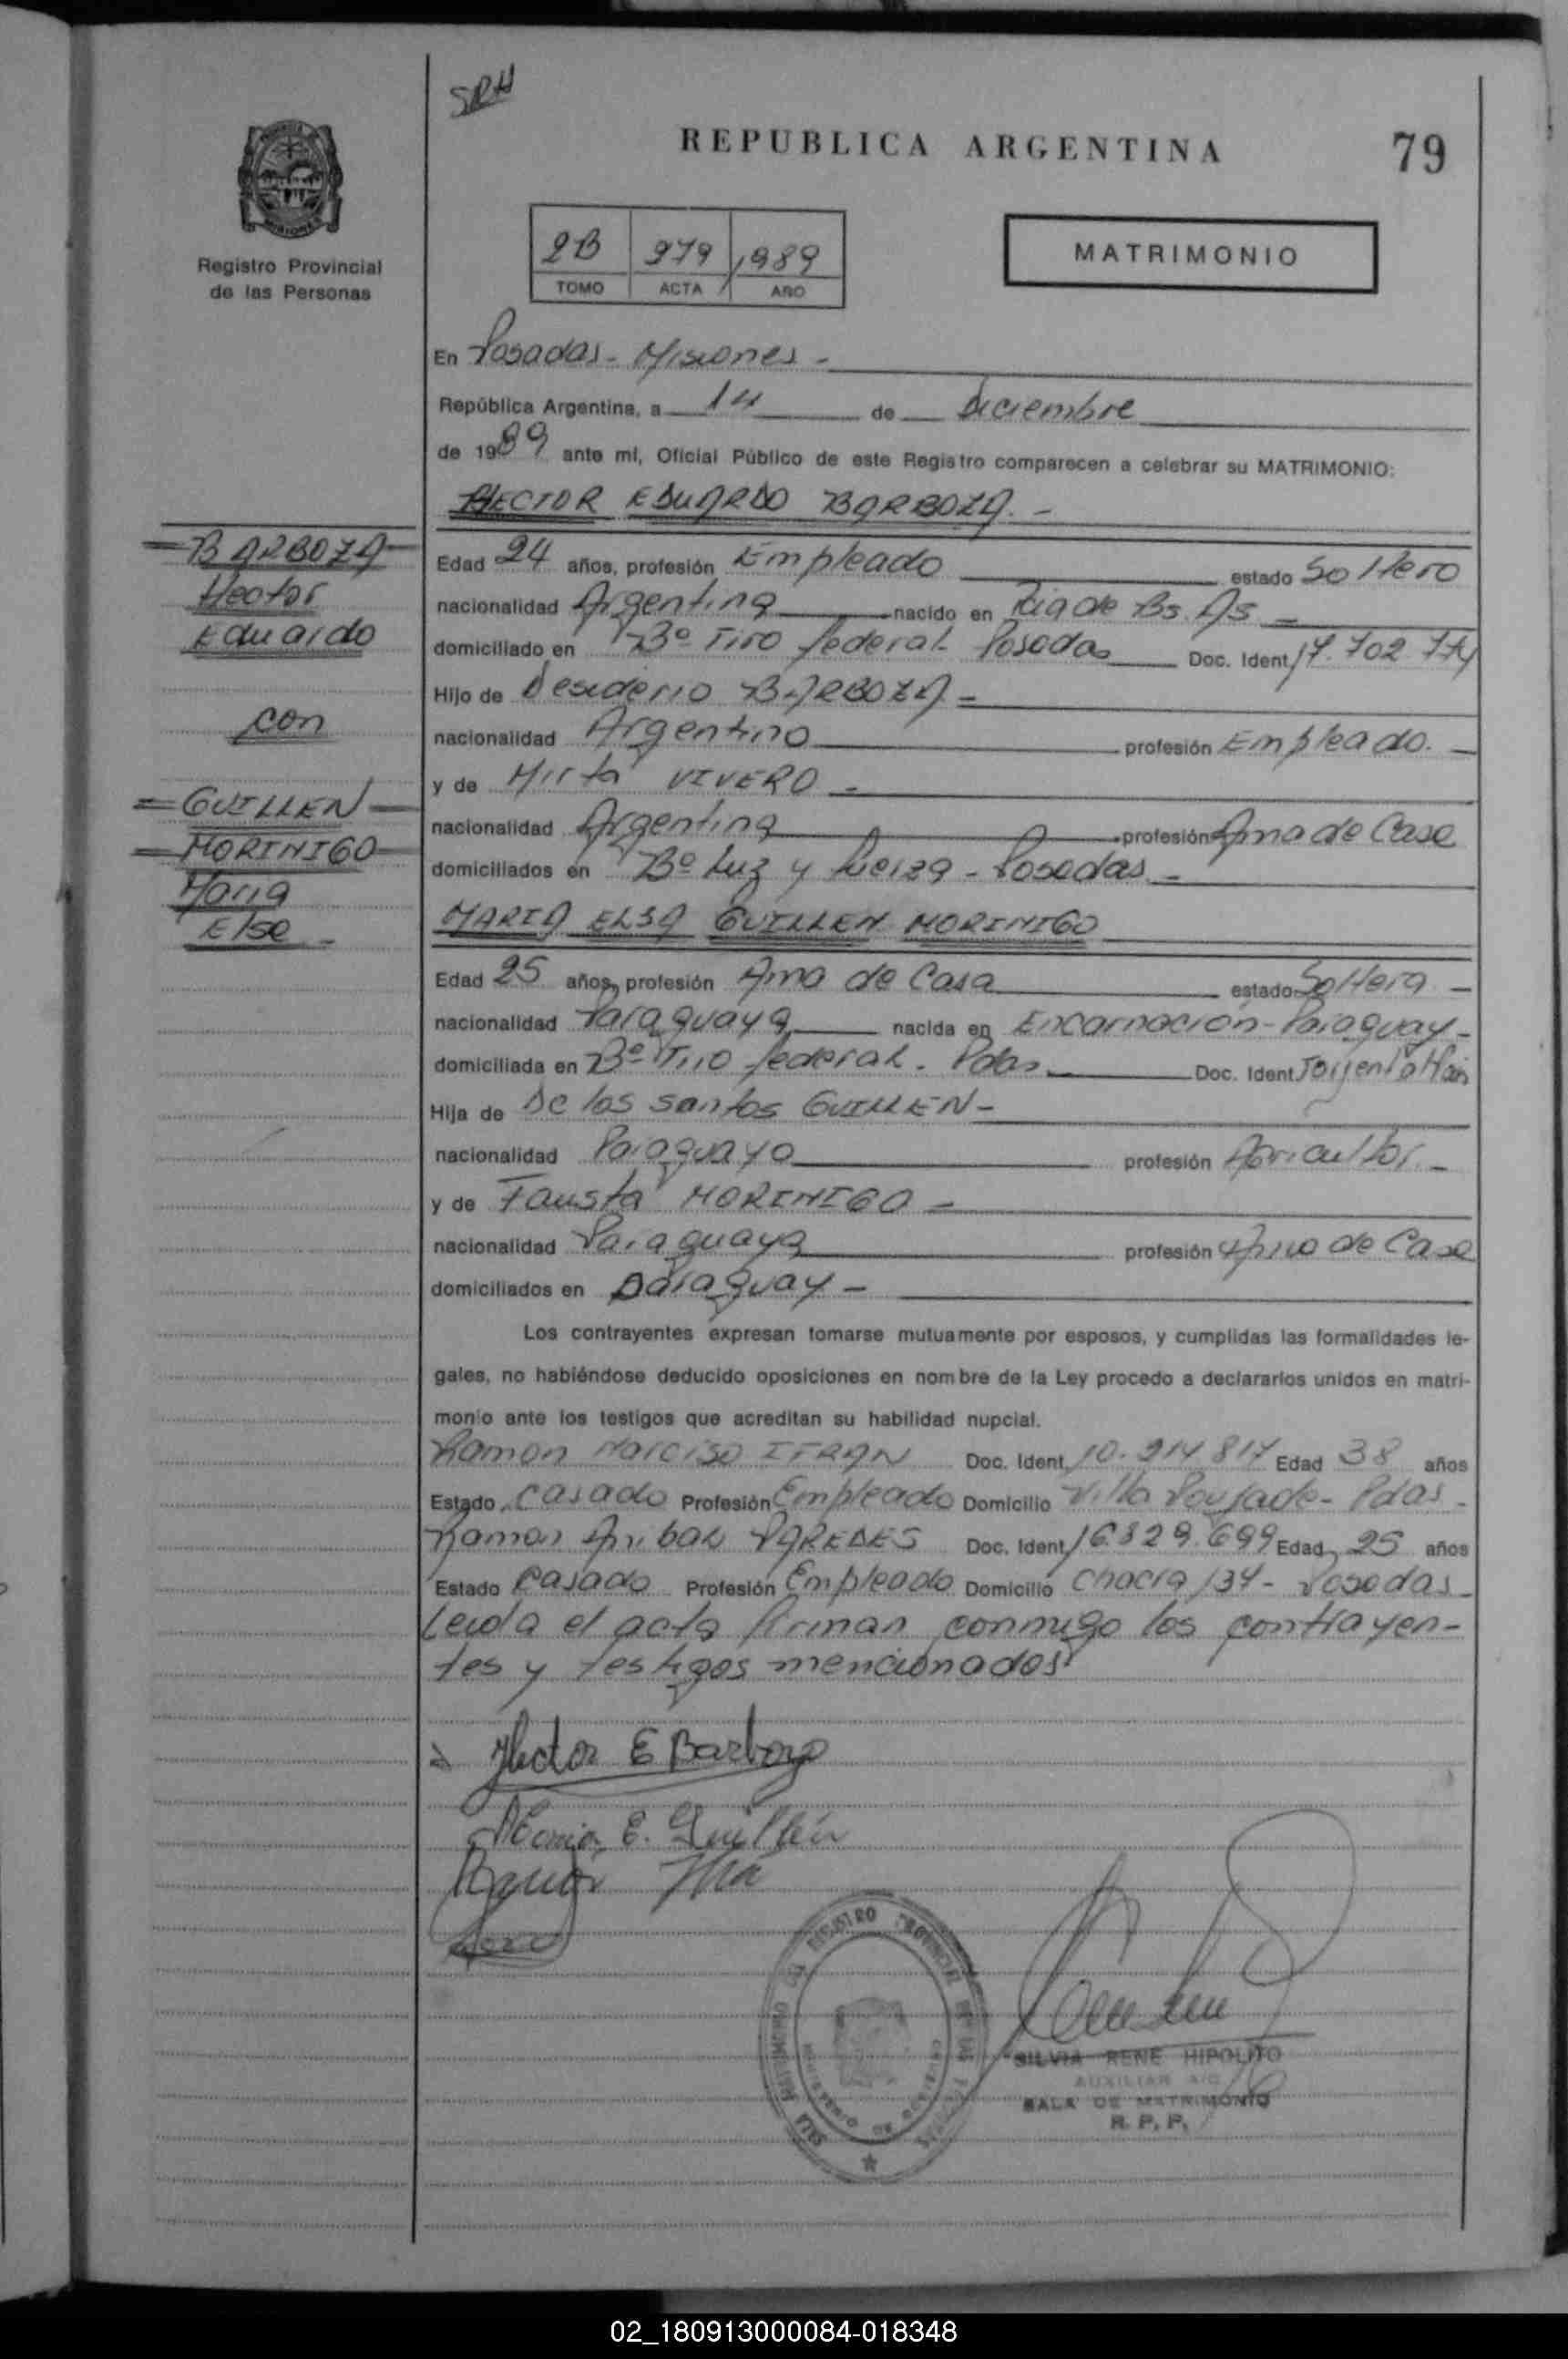 SRH
REPUBLICA ARGENTINA
79
Registro Provincial
de las Personas
2B 979 1989
TOMO ACTA AÑO
MATRIMONIO
En Posadas - Misiones -
República Argentina, a 14 de diciembre
de 1989 ante mí, Oficial Público de este Registro comparecen a celebrar su MATRIMONIO:
HECTOR EDUARDO BARBOZA. -
Edad 24 años, profesión Empleado estado Soltero
nacionalidad Argentina nacido en Pcia de Bs. As -
domiciliado en Bº Tiro federal - Posadas Doc. Ident 17.702.774
Hijo de Desiderio BARBOZA -
nacionalidad Argentino profesión Empleado. -
y de Mirta VIVERO -
nacionalidad Argentina profesión Ama de Casa
domiciliados en Bº Luz y fuerza - Posadas -
MARIA ELSA GUILLEN MORINIGO
Edad 25 años, profesión Ama de Casa estado Soltera -
nacionalidad Paraguaya nacida en Encarnación - Paraguay -
domiciliada en Bº Tiro federal - Pdas. Doc. Ident
Hija de De los santos GUILLEN -
nacionalidad Paraguayo profesión Agricultor. -
y de Fausta MORINIGO -
nacionalidad Paraguaya profesión Ama de Casa
domiciliados en Paraguay -
Los contrayentes expresan tomarse mutuamente por esposos, y cumplidas las formalidades le-
gales, no habiéndose deducido oposiciones en nombre de la Ley procedo a declararlos unidos en matri-
monio ante los testigos que acreditan su habilidad nupcial.
Ramon Narciso ITRAN Doc. Ident 10.914.817 Edad 38 años
Estado Casado Profesión Empleado Domicilio Villa Poujade - Pdas -
Ramon Anibal PAREDES Doc. Ident 16.829.699 Edad 25 años
Estado Casado Profesión Empleado Domicilio Chacra 134 - Posadas -
Leida el acta firman conmigo los contrayen-
tes y testigos mencionados
BARBOZA
Hector
Eduardo
con
GUILLEN
MORINIGO
Maria
Elsa -
Hector E Barboza
Maria E. Guillén
Ramón
REGISTRO PROVINCIAL DE LAS PERSONAS
SALA MATRIMONIO
SILVIA RENE HIPOLITO
AUXILIAR A/C
SALA DE MATRIMONIO
R. P. P.
02_180913000084-018348